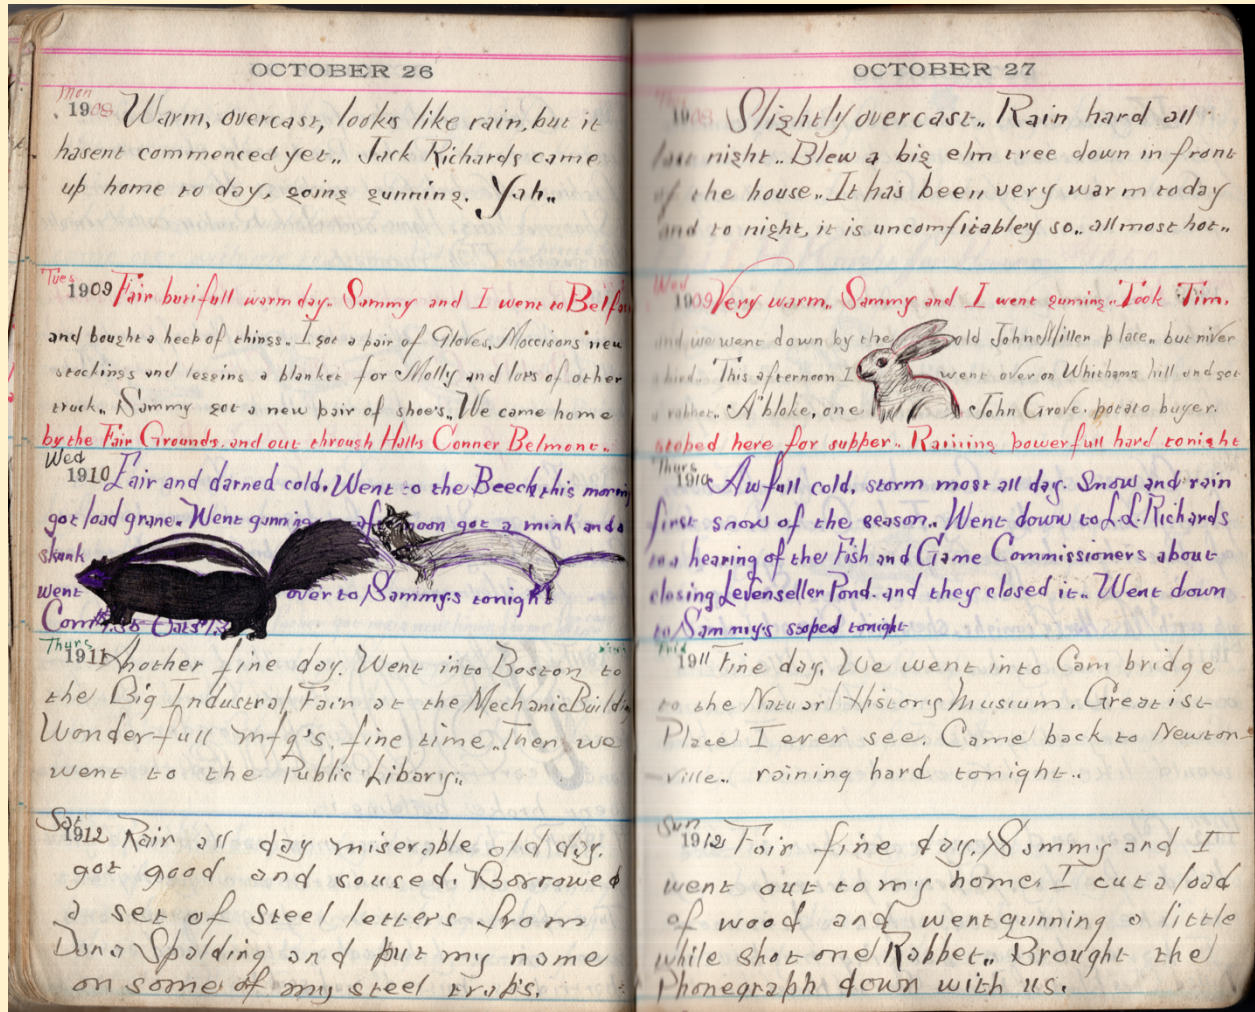 OCTOBER 26
Mon
1908 Warm, overcast, looks like rain, but it
hasent commenced yet.. Jack Richards came
up home to day, going gunning. Yah..
Tues
1909 Fair butifull warm day. Sammy and I went to Belfas
and bought a heep of things. I got a pair of Gloves, Moccisons new
stockings and leggins a blanket for Molly and lots of other
truck.. Sammy got a new pair of shoe's.. We came home
by the Fair Grounds. and out through Halls Conner Belmont..
Wed
1910 Fair and darned cold. Went to the Beech this mornin
got load grane. Went gunning noon got a mink and a
skunk
went over to Sammy's tonight
Oats
Thurs
1911 Another fine day. Went into Boston to
the Big Industral Fair at the Mechanic Buildin
Wonderfull mfg's. fine time.. Then we
went to the Public Libary..
Sat
1912 Rair all day miserable old day.
got good and soused. Borrowed
a set of steel letters from
Dana Spalding and put my name
on some of my steel trap's.
OCTOBER 27
1908 Slightly overcast.. Rain hard all
last night.. Blew a big elm tree down in front
of the house.. It has been very warm today
and to night, it is uncomfitabley so.. allmost hot..
Wed
1909 Very warm.. Sammy and I went gunning.. Took Tim.
and we went down by the old John Miller place.. but niver
a bird.. This afternoon I went over on Whithams hill and got
a rabbet.. A bloke, one John Grove. potato buyer.
stoped here for supper.. Raining powerfull hard tonight
Thurs
1910 Awfull cold, storm most all day. Snow and rain
first snow of the season.. Went down to L.L. Richards
to a hearing of the Fish and Game Commissioners about
closing Levenseller Pond. and they closed it.. Went down
to Sammy's stoped tonight
Frid
1911 Fine day. We went into Cambridge
to the Natuarl History Musium. Greatist
Place I ever see. Came back to Newton-
ville.. raining hard tonight..
Sun
1912 Fair fine day. Sammy and I
went out to my home. I cut a load
of wood and went gunning a little
while shot one Rabbet.. Brought the
Phonegraph down with us.